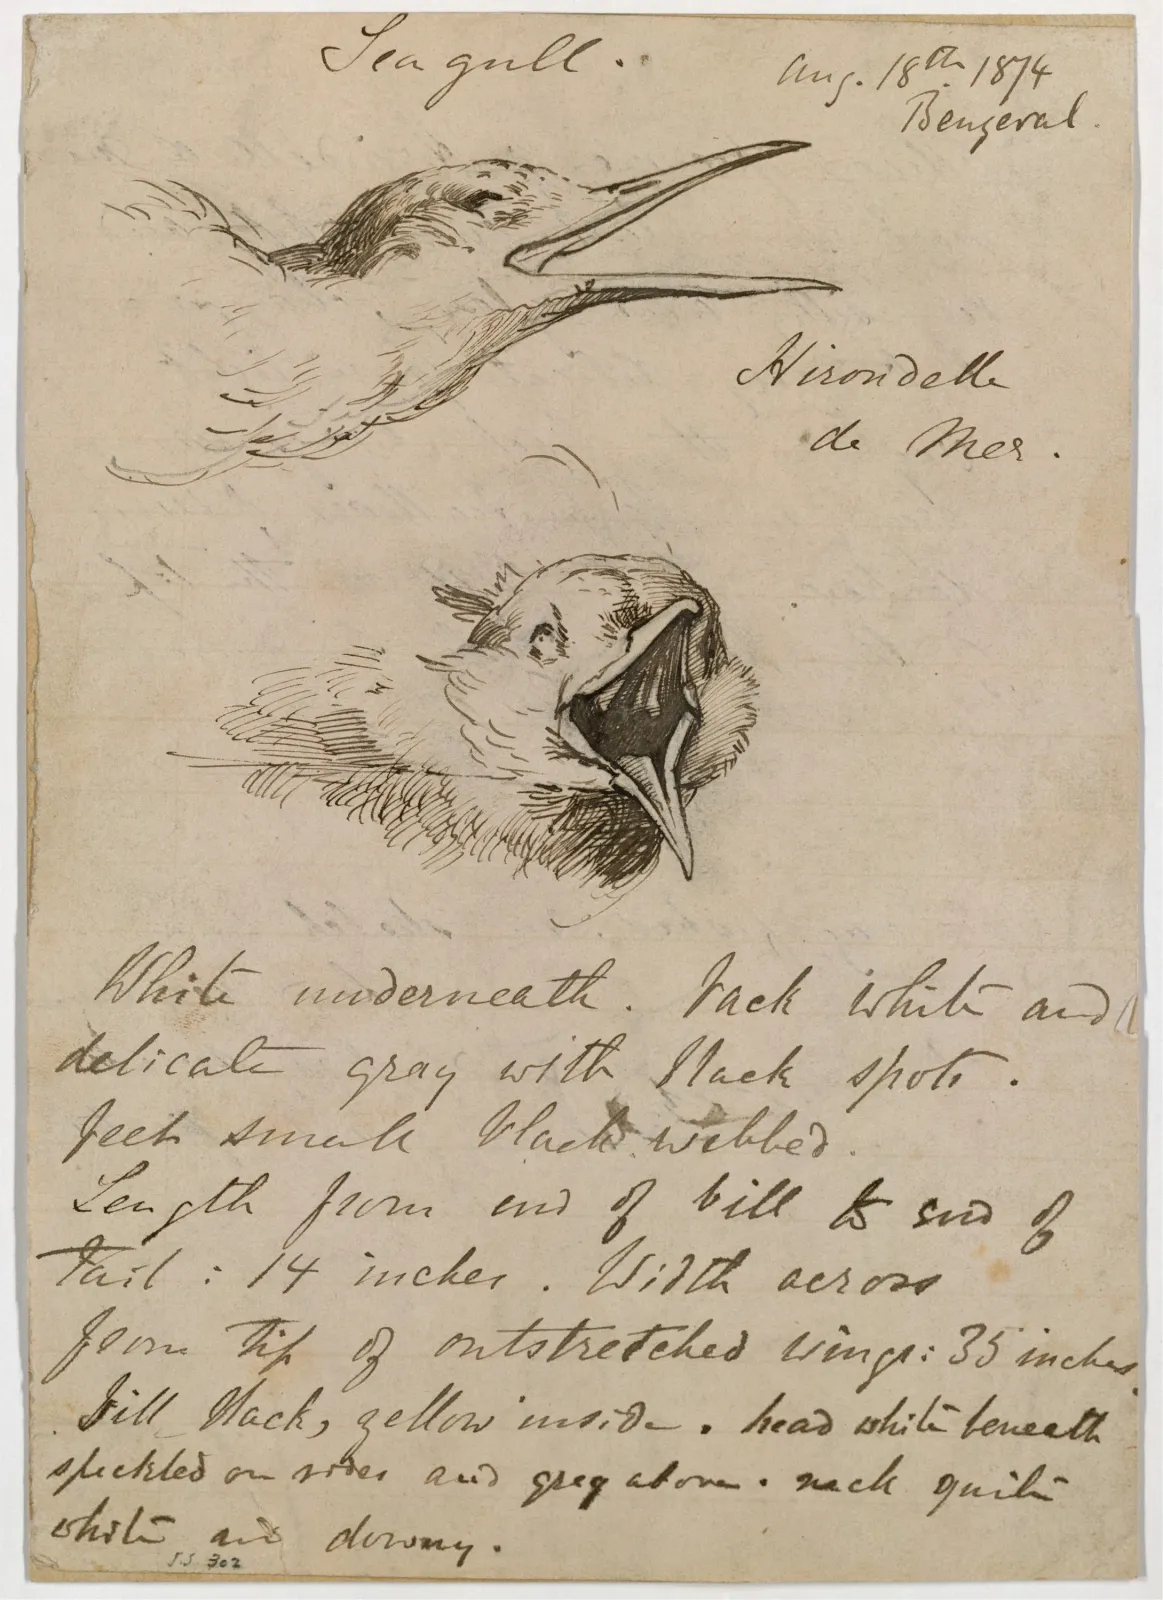 Sea gull.
Aug. 18th 1874
Benzeval.
Hirondelle
de Mer.
White underneath. back white and
delicate gray with black spots.
feet small black webbed.
Length from end of bill to end of
Tail : 14 inches. Width across
from tip of outstretched wings: 35 inches.
Bill black, yellow inside. head white beneath
speckled on sides and grey above. neck quite
white and downy.
S.S 302